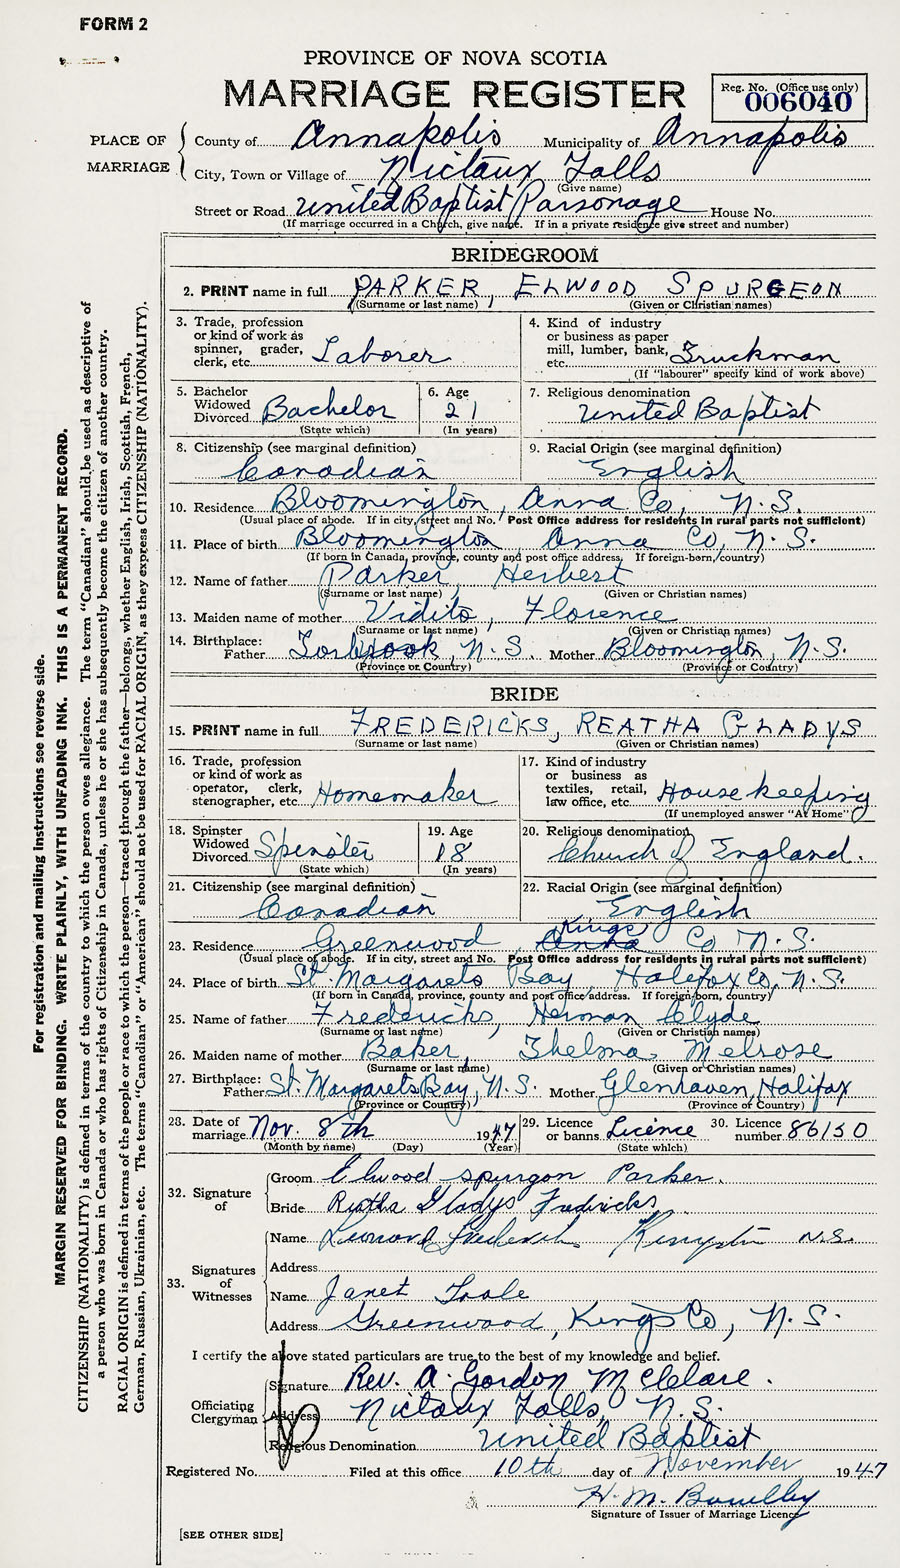 FORM 2
PROVINCE OF NOVA SCOTIA
MARRIAGE REGISTER
Reg. No. (Office use only)
006040
PLACE OF MARRIAGE
County of Annapolis Municipality of Annapolis
City, Town or Village of Nictaux Falls
(Give name)
Street or Road United Baptist Parsonage House No.
(If marriage occurred in a Church, give name. If in a private residence give street and number)
BRIDEGROOM
2. PRINT name in full PARKER, ELWOOD SPURGEON
(Surname or last name) (Given or Christian names)
3. Trade, profession or kind of work as spinner, grader, clerk, etc. Laborer
4. Kind of industry or business as paper mill, lumber, bank, etc. Truckman
(If "labourer" specify kind of work above)
5. Bachelor Widowed Divorced Bachelor
(State which)
6. Age 21
(In years)
7. Religious denomination
United Baptist
8. Citizenship (see marginal definition)
Canadian
9. Racial Origin (see marginal definition)
English
10. Residence Bloomington, Anna Co, N.S.
(Usual place of abode. If in city, street and No. Post Office address for residents in rural parts not sufficient)
11. Place of birth Bloomington Anna Co, N.S.
(If born in Canada, province, county and post office address. If foreign-born, country)
12. Name of father Parker, Herbert
(Surname or last name) (Given or Christian names)
13. Maiden name of mother Vidito, Florence
(Surname or last name) (Given or Christian names)
14. Birthplace: Father Torbrook, N.S. Mother Bloomington, N.S.
(Province or Country) (Province or Country)
BRIDE
15. PRINT name in full FREDERICKS, REATHA GLADYS
(Surname or last name) (Given or Christian names)
16. Trade, profession or kind of work as operator, clerk, stenographer, etc. Homemaker
17. Kind of industry or business as textiles, retail, law office, etc. House keeping
(If unemployed answer "At Home")
18. Spinster Widowed Divorced Spinster
(State which)
19. Age 18
(In years)
20. Religious denomination
Church of England.
21. Citizenship (see marginal definition)
Canadian
22. Racial Origin (see marginal definition)
English
Kings
23. Residence Greenwood, Anna Co N.S.
(Usual place of abode. If in city, street and No. Post Office address for residents in rural parts not sufficient)
24. Place of birth St. Margarets Bay, Halifax Co, N.S.
(If born in Canada, province, county and post office address. If foreign-born, country)
25. Name of father Fredericks, Herman Clyde
(Surname or last name) (Given or Christian names)
26. Maiden name of mother Baker, Thelma Melrose
(Surname or last name) (Given or Christian names)
27. Birthplace: Father St. Margarets Bay, N.S. Mother Glenhaven, Halifax
(Province or Country) (Province or Country)
28. Date of marriage Nov. 8th 1947
(Month by name) (Day) (Year)
29. Licence or banns Licence
(State which)
30. Licence number 86130
32. Signature of
Groom Elwood spurgon Parker.
Bride Reatha Gladys Fredricks.
33. Signatures of Witnesses
Name Kingston N.S.
Address
Name Janet Toole
Address Greenwood, Kings Co, N.S.
I certify the above stated particulars are true to the best of my knowledge and belief.
Officiating Clergyman
Signature Rev. A. Gordon McClare.
Address Nictaux Falls, N.S.
Religious Denomination United Baptist
Registered No. Filed at this office 10th day of November 1947
H. M.
Signature of Issuer of Marriage Licence
[SEE OTHER SIDE]
For registration and mailing instructions see reverse side.
MARGIN RESERVED FOR BINDING. WRITE PLAINLY, WITH UNFADING INK. THIS IS A PERMANENT RECORD.
CITIZENSHIP (NATIONALITY) is defined in terms of the country to which the person owes allegiance. The term "Canadian" should be used as descriptive of
a person who was born in Canada or who has rights of Citizenship in Canada, unless he or she has subsequently become the citizen of another country.
RACIAL ORIGIN is defined in terms of the people or race to which the person—traced through the father—belongs, whether English, Irish, Scottish, French,
German, Russian, Ukrainian, etc. The terms "Canadian" or "American" should not be used for RACIAL ORIGIN, as they express CITIZENSHIP (NATIONALITY).